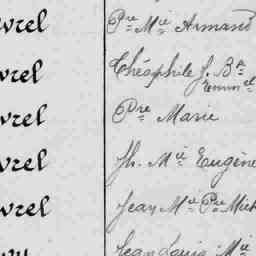 vrel Pre Mie Armand
vrel Théophile J. Bte
Emm el
vrel Pre Marie
vrel Jh. Mie Eugène
vrel Jean Mie Pre Mich
Jean Louis Mie